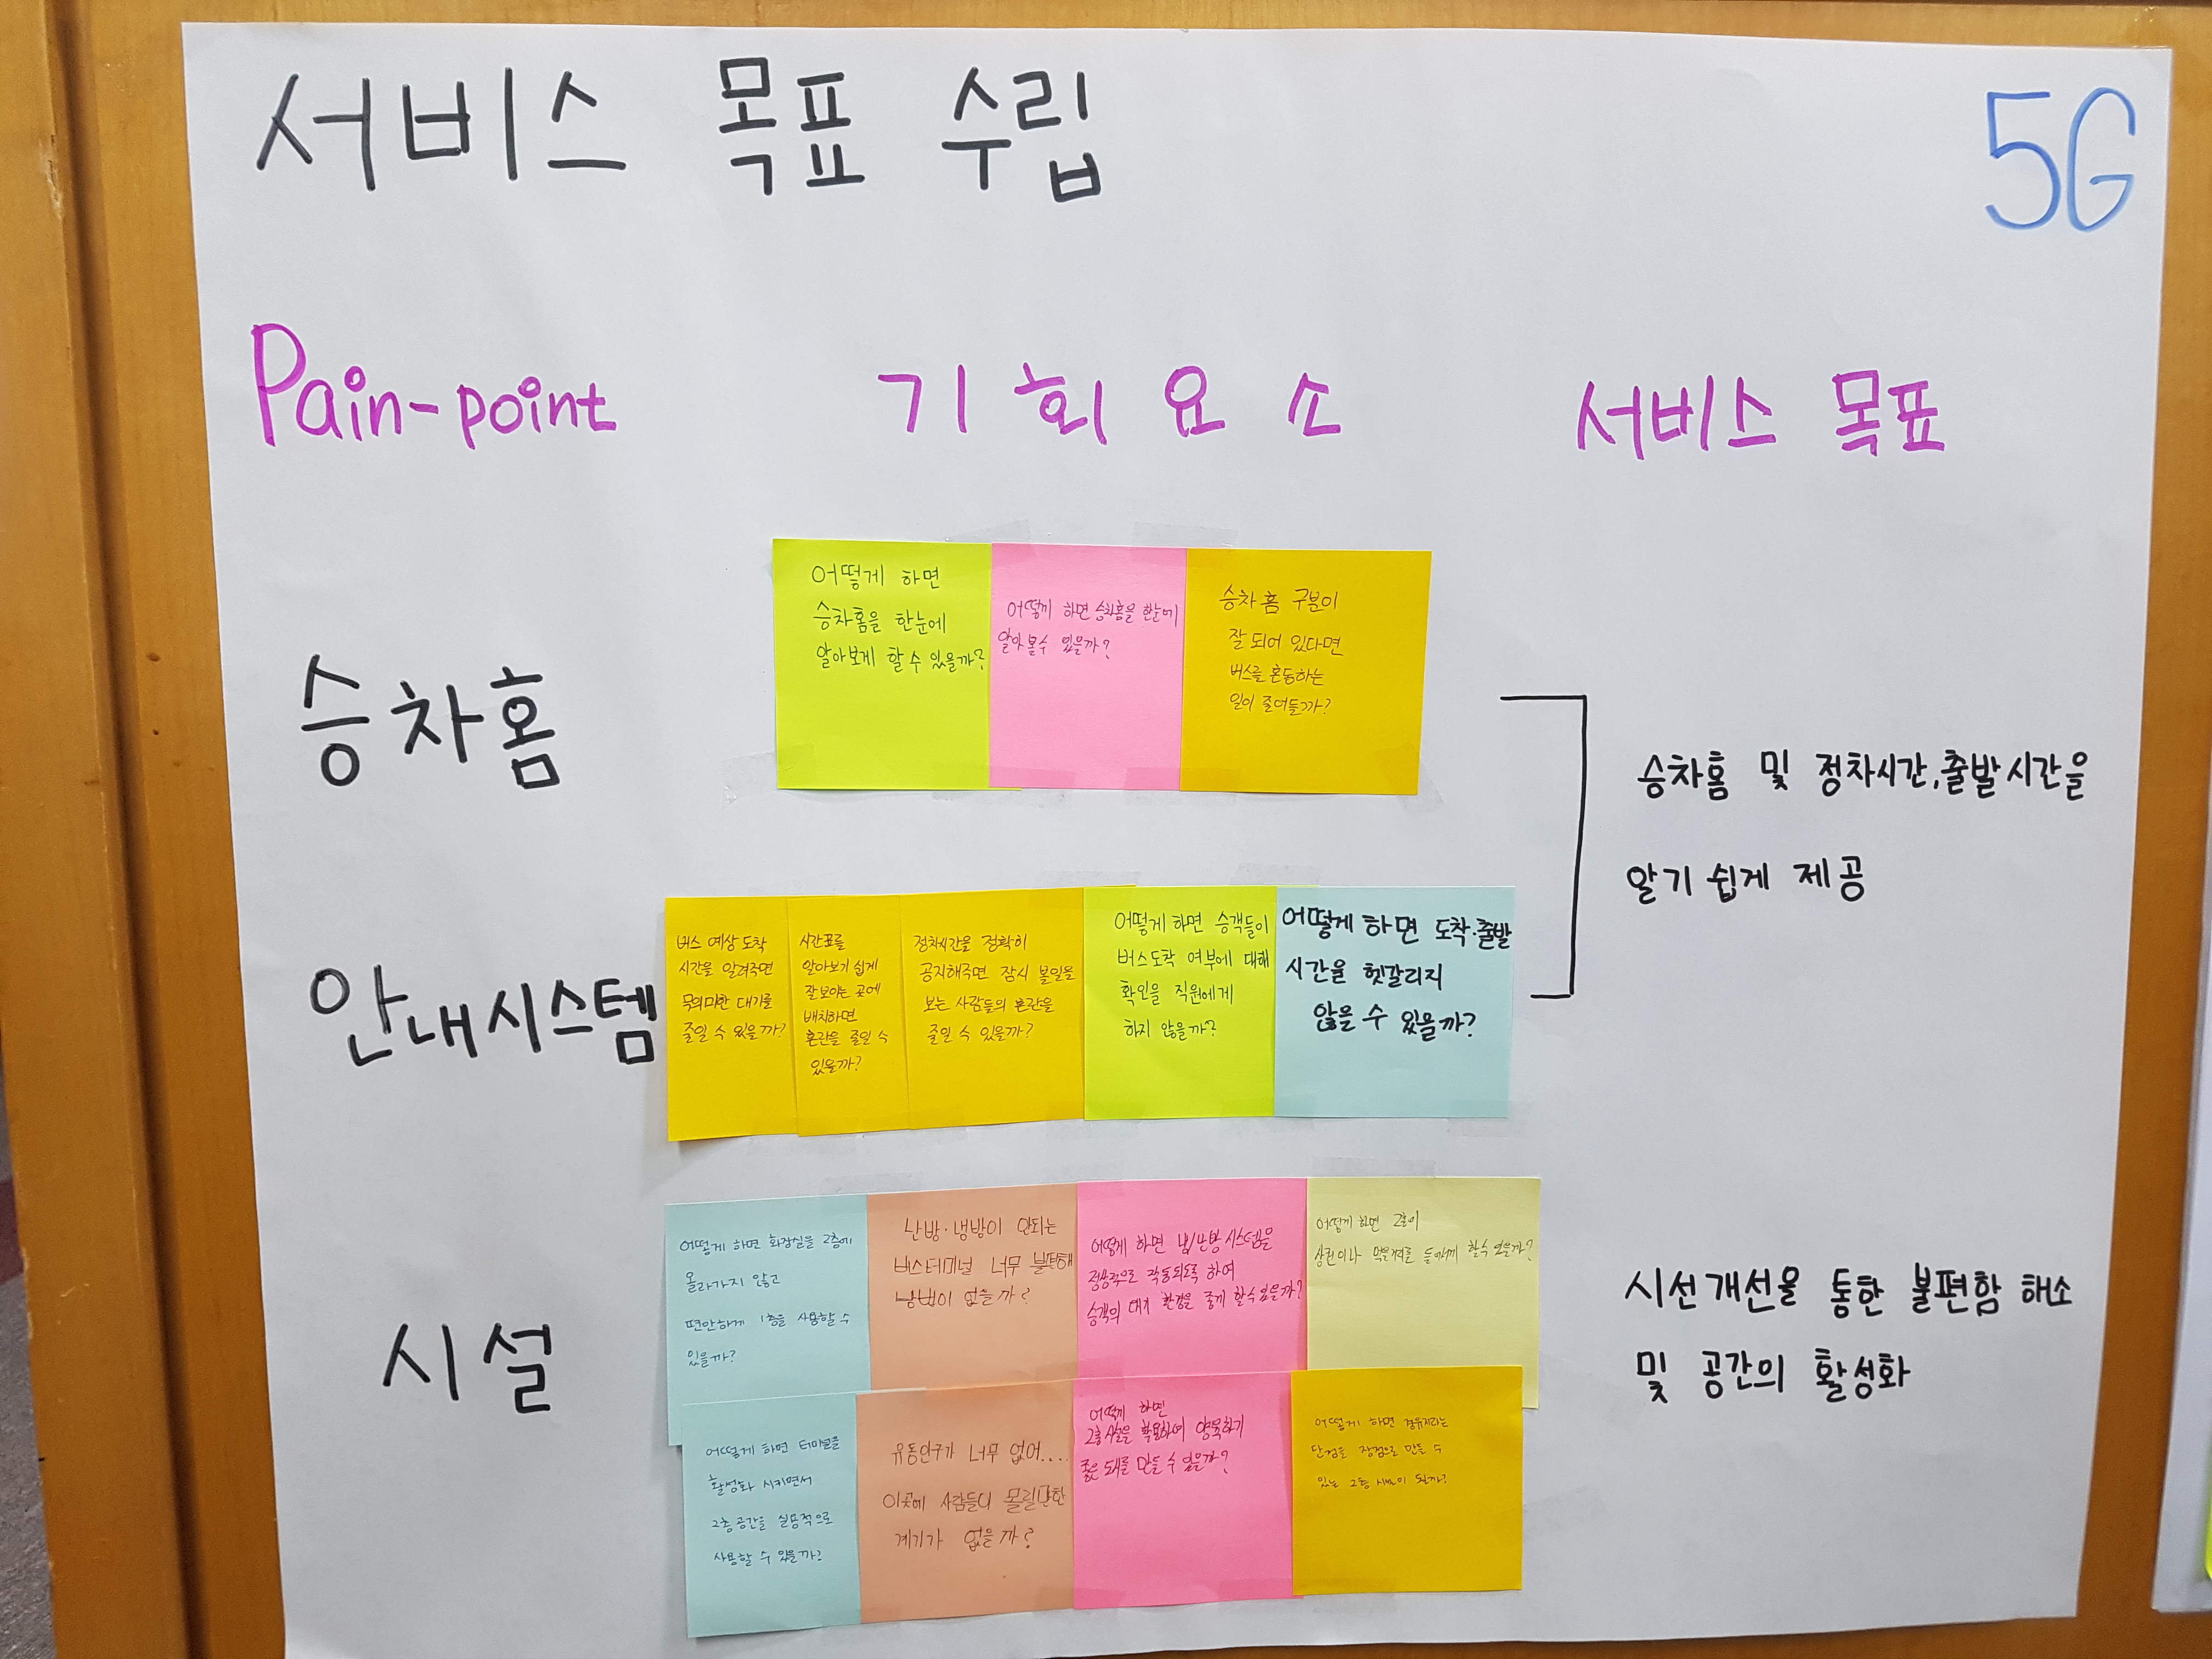 서비스 목표 수립
5G
Pain-point 기회요소 서비스 목표
승차홈
어떻게 하면
승차홈을 한눈에
알아보게 할 수 있을까?
어떻게 하면 승차홈을 한눈에
알아볼수 있을까?
승차홈 구분이
잘 되어 있다면
버스를 혼동하는
일이 줄어들까?
승차홈 및 정차시간,출발시간을
알기 쉽게 제공
안내시스템
버스 예상 도착
시간을 알려주면
무의미한 대기를
줄일 수 있을까?
시간표를
알아보기 쉽게
잘보이는 곳에
배치하면
혼란을 줄일 수
있을까?
정차시간을 정확히
공지해주면 잠시 볼일을
보는 사람들의 혼란을
줄일 수 있을까?
어떻게 하면 승객들이
버스도착 여부에 대해
확인을 직원에게
하지 않을까?
어떻게 하면 도착·출발
시간을 헷갈리지
않을 수 있을까?
시설
어떻게 하면 화장실을 2층에
올라가지 않고
편안하게 1층을 사용할 수
있을까?
난방·냉방이 안되는
버스터미널 너무 불편해
방법이 없을까?
어떻게 하면 냉난방시스템을
정상적으로 작동되도록 하여
승객의 대기 환경을 좋게 할수있을까?
어떻게 하면 2층이
상권이나 먹을거리를 들어서게 할수 있을까?
어떻게 하면 터미널을
활성화 시키면서
2층공간을 실용적으로
사용할 수 있을까?
유동인구가 너무 없어....
이곳에 사람들이 몰릴만한
계기가 없을까?
어떻게 하면
2층시설을 활용하여 양육하기
좋은 도시를 만들 수 있을까?
어떻게 하면 경유지라는
단점을 장점으로 만들 수
있는 2층 이 될까?
시선개선을 통한 불편함 해소
및 공간의 활성화